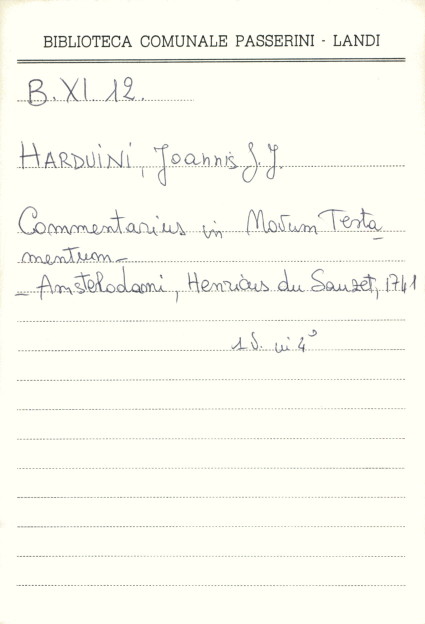 BIBLIOTECA COMUNALE PASSERINI - LANDI
B. XI. 12.
HARDUINI, Joannis S. J.
Commentarius in Novum Testa
mentum -
- Amstelodami, Henricus du Sauzet, 1741
1 v. in 4°